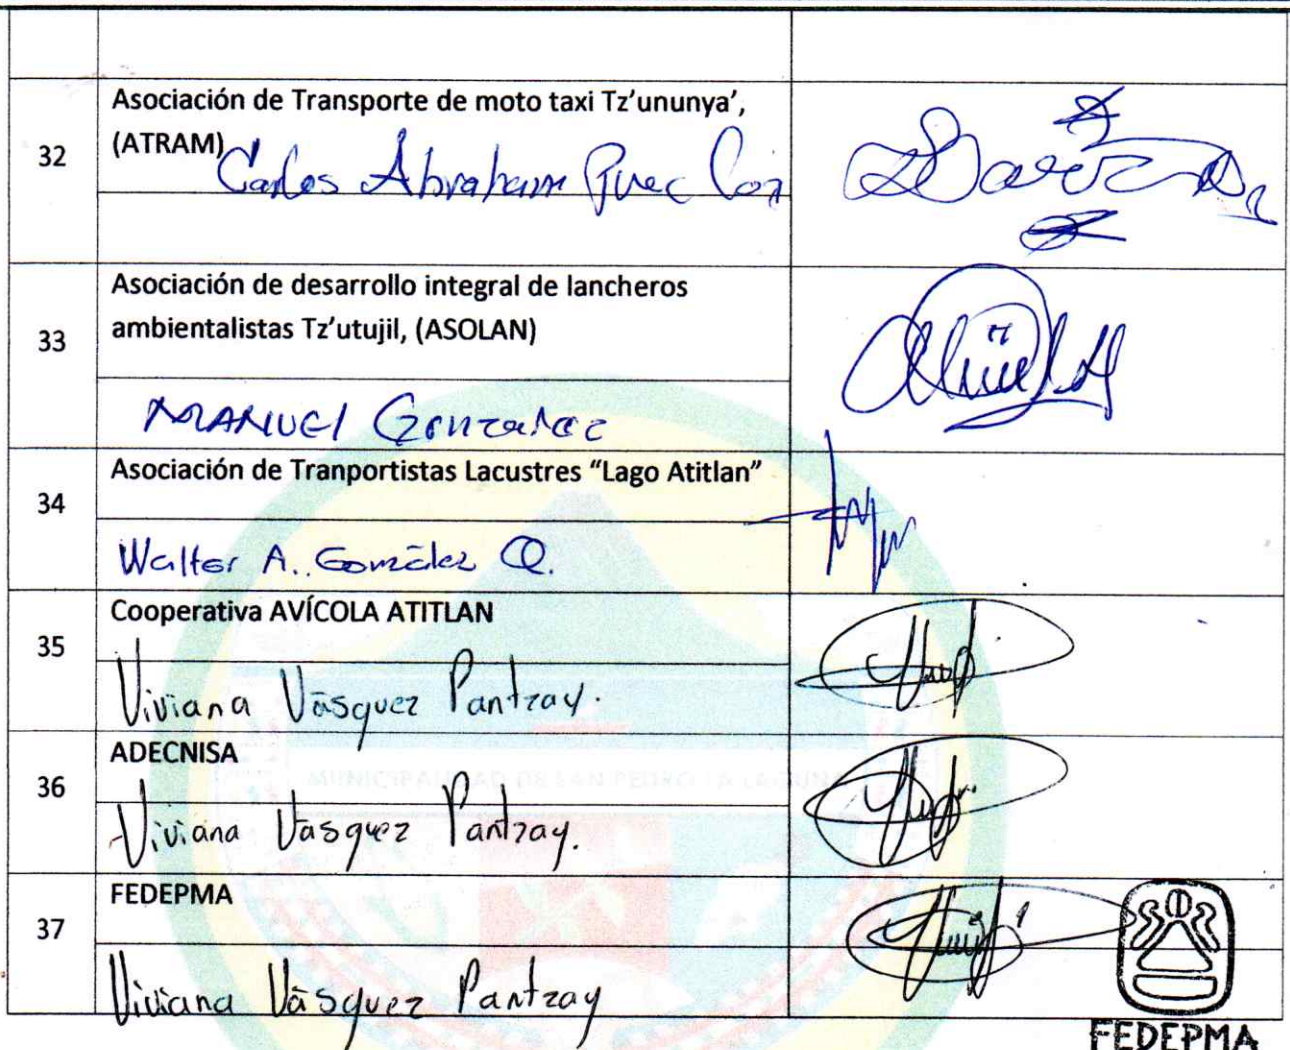 32
Asociación de Transporte de moto taxi Tz’ununya’,
(ATRAM)
Carlos Abraham
33
Asociación de desarrollo integral de lancheros
ambientalistas Tz’utujil, (ASOLAN)
MANUEL González
34
Asociación de Tranportistas Lacustres “Lago Atitlan”
Walter A. González Q.
35
Cooperativa AVÍCOLA ATITLAN
Viviana Vásquez Pantzay.
MUNICIPALIDAD DE SAN PEDRO LA LAGUNA
36
ADECNISA
Viviana Vasquez Pantzay.
37
FEDEPMA
Viviana Vásquez Pantzay
FEDEPMA